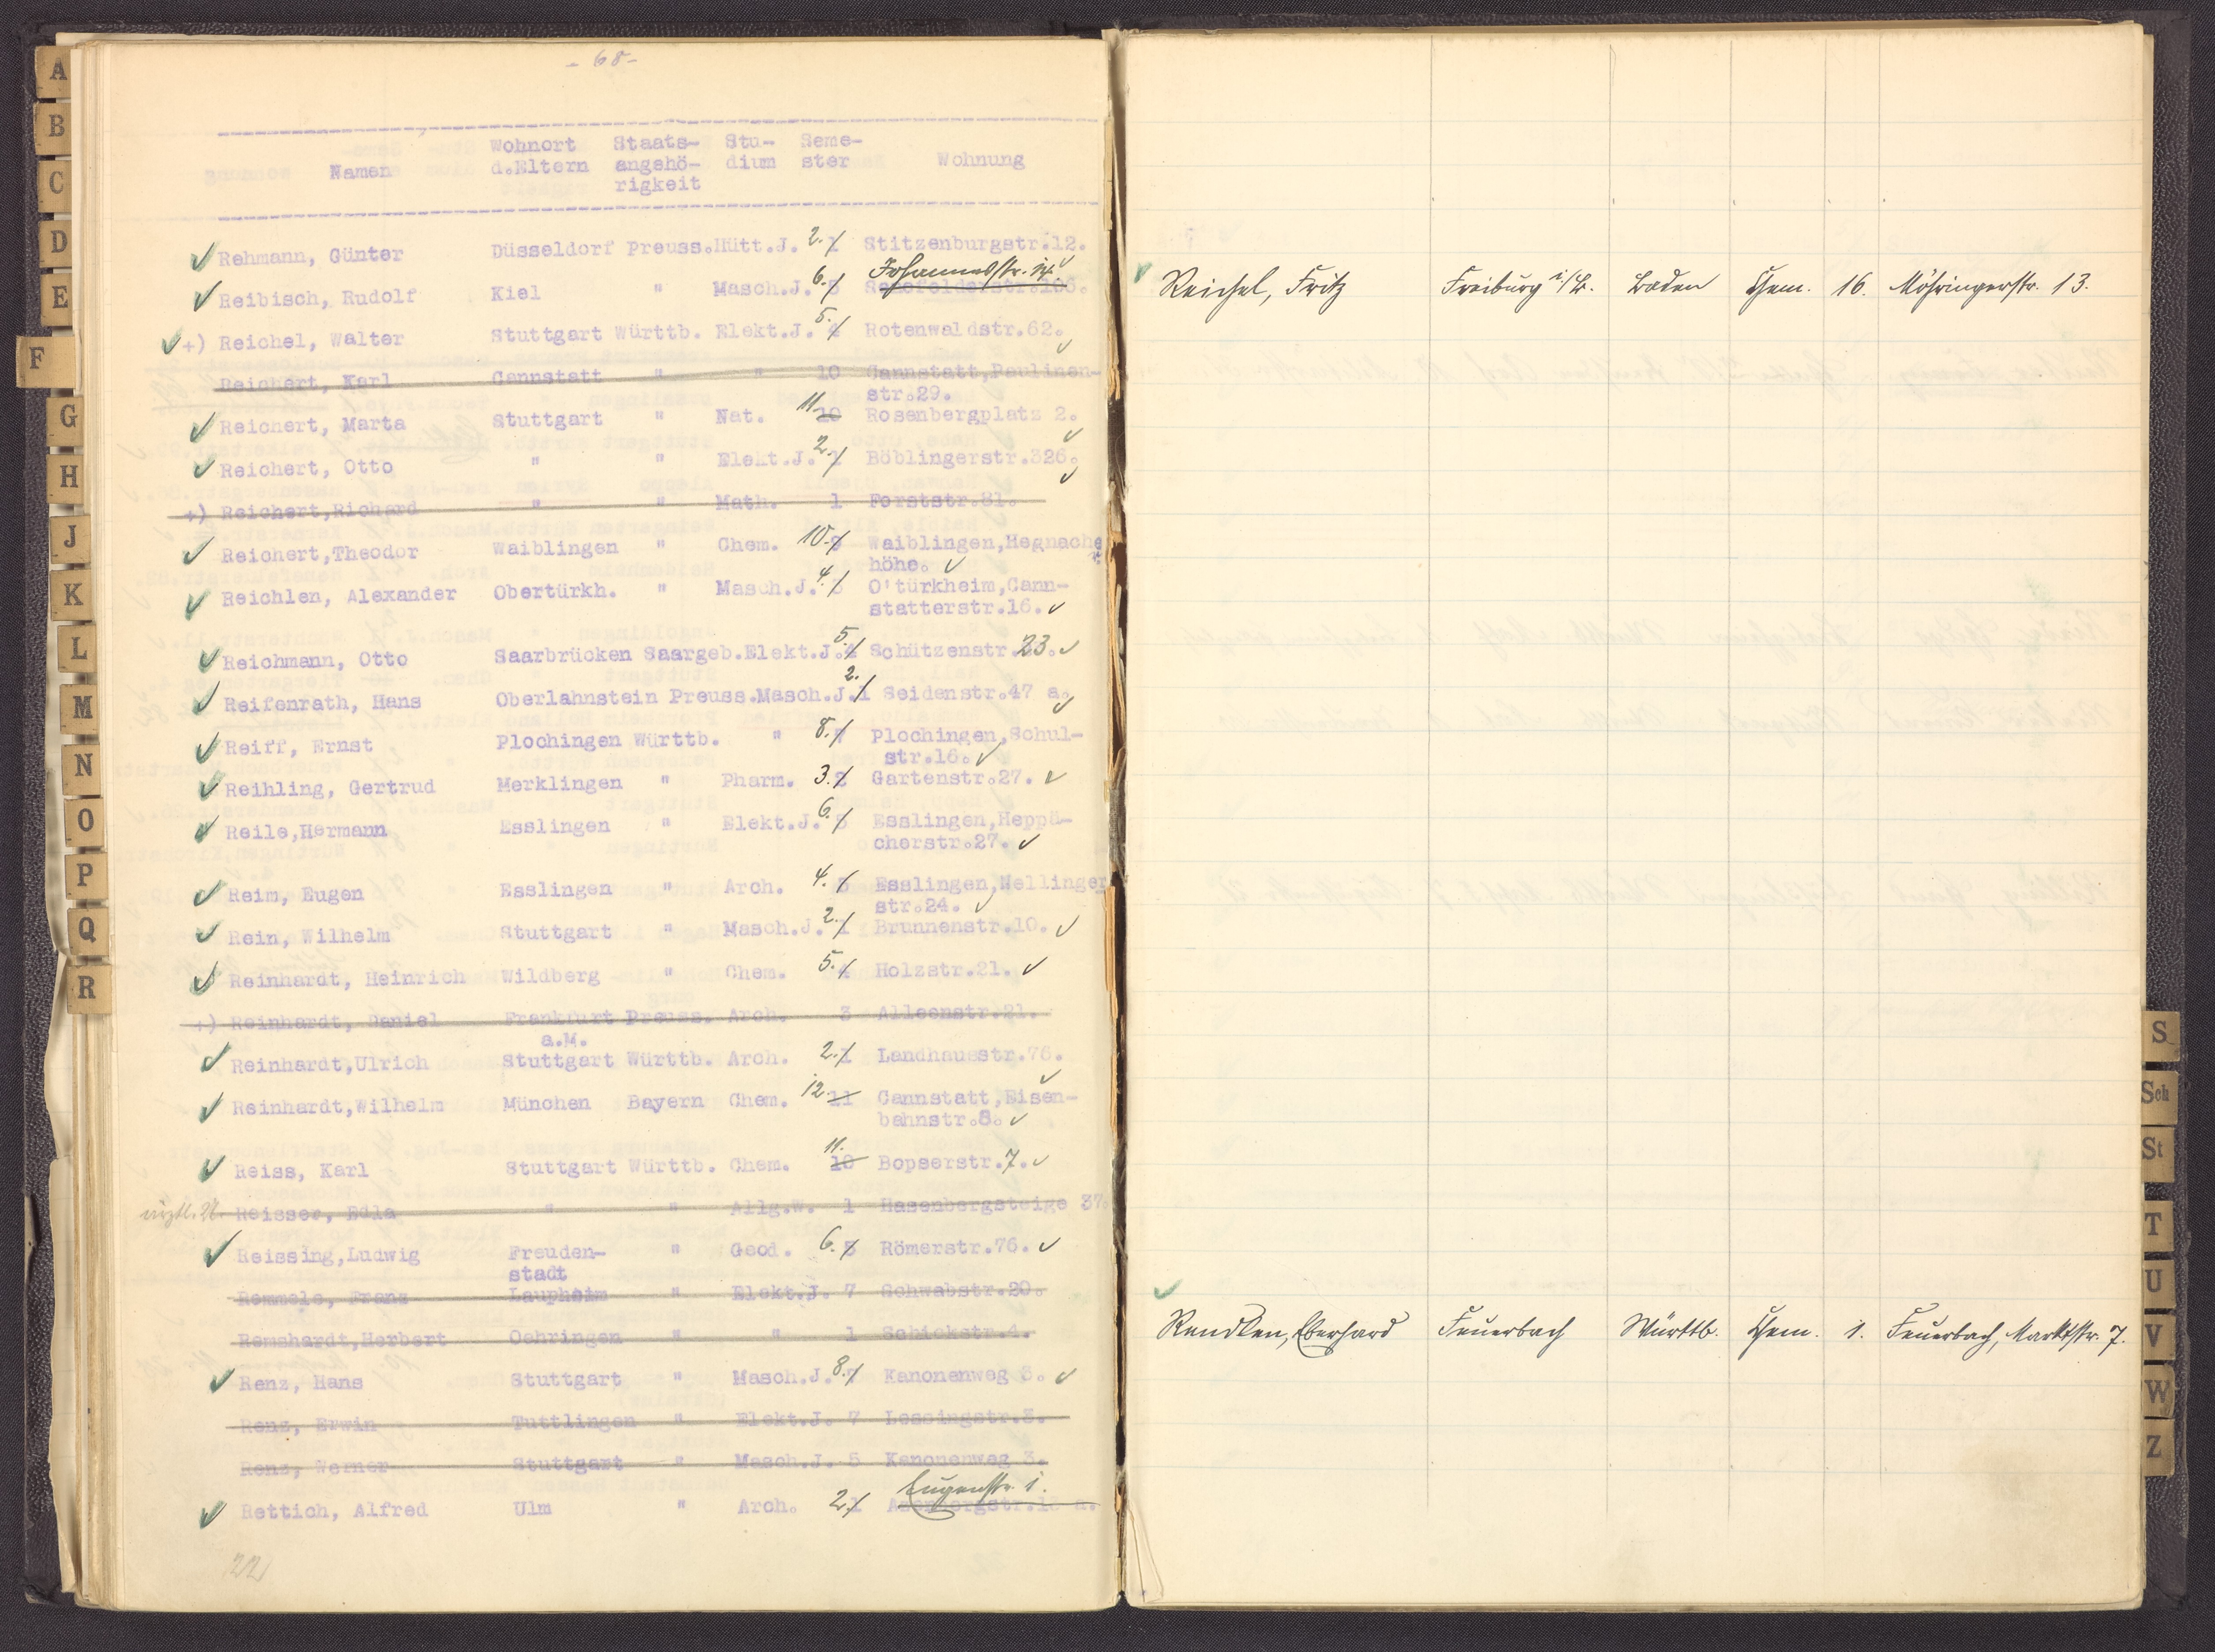 - 68 -
Namen Wohnort d.Eltern Staats-angehö-rigkeit Stu-dium Seme-ster Wohnung
Rehmann, Günter Düsseldorf Preuss. Hütt.J. 2. 1 Stitzenburgstr.12.
Johannesstr. 14.
Reibisch, Rudolf Kiel " Masch.J. 6. 5 Senefelderstr.106.
+) Reichel, Walter Stuttgart Württb. Elekt.J. 5. 4 Rotenwaldstr.62.
Reichert, Karl Cannstatt " " 10 Cannstatt,Paulinen-
str.29.
Reichert, Marta Stuttgart " Nat. 11. 10 Rosenbergplatz 2.
Reichert, Otto " " Elekt.J. 2. 1 Böblingerstr.326.
+) Reichert,Richard " " Math. 1 Forststr.81.
Reichert,Theodor Waiblingen " Chem. 10. 9 Waiblingen,Hegnache
höhe.
Reichlen, Alexander Obertürkh. " Masch.J. 4. 3 O'türkheim,Cann-
statterstr.16.
Reichmann, Otto Saarbrücken Saargeb. Elekt.J. 5. 4 Schützenstr.23.
Reifenrath, Hans Oberlahnstein Preuss. Masch.J. 2. 1 Seidenstr.47 a.
Reiff, Ernst Plochingen Württb. " 8. 7 Plochingen,Schul-
str.16.
Reihling, Gertrud Merklingen " Pharm. 3. 2 Gartenstr.27.
Reile,Hermann Esslingen " Elekt.J. 6. 5 Esslingen,Heppä-
cherstr.27.
Reim, Eugen Esslingen " Arch. 4. 3 Esslingen,Nellinger
str.24.
Rein, Wilhelm Stuttgart " Masch.J. 2. 1 Brunnenstr.10.
Reinhardt, Heinrich Wildberg " Chem. 5. 4 Holzstr.21.
+) Reinhardt, Daniel Frankfurt Preuss. Arch. 3 Alleenstr.21.
a.M.
Reinhardt,Ulrich Stuttgart Württb. Arch. 2. 1 Landhausstr.76.
Reinhardt,Wilhelm München Bayern Chem. 12. 11 Cannstatt,Eisen-
bahnstr.8.
Reiss, Karl Stuttgart Württb. Chem. 11. 10 Bopserstr.7.
Reisser, Edla " " Allg.W. 1 Hasenbergsteige 37.
Reissing,Ludwig Freuden- " Geod. 6. 5 Römerstr.76.
stadt
Remmele, Franz Laupheim " Elekt.J. 7 Schwabstr.20.
Remshardt,Herbert Oehringen " " 1 Schickstr.4.
Renz, Hans Stuttgart " Masch.J. 8. 7 Kanonenweg 3.
Renz, Erwin Tuttlingen " Elekt.J. 7 Lessingstr.3.
Renz, Werner Stuttgart " Masch.J. 5 Kanonenweg 3.
Eugenstr. 1.
Rettich, Alfred Ulm " Arch. 2. 1
22
Reichel, Fritz Freiburg i/B. Baden Chem. 16. Möhringerstr. 13.
Rendlen, Eberhard Feuerbach Württb. Chem. 1. Feuerbach, Marktstr. 7.
A
B
C
D
E
F
G
H
J
K
L
M
N
O
P
Q
R
S
Sch
St
T
U
V
W
Z